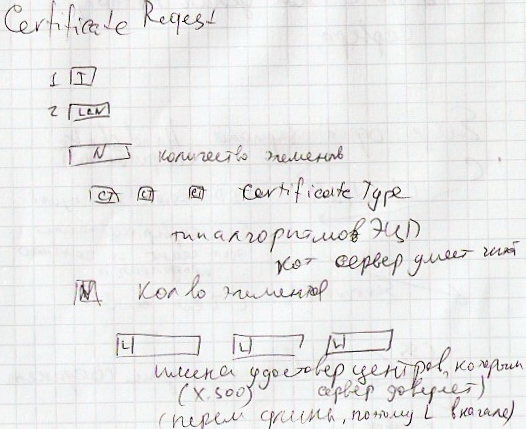 Certificate Reqest
1 T
2 Len
N количество элементов
CT CT CT Certificate Type
тип алгоритмов ЭЦП
кот сервер умеет
N Кол во элементов
L L L
имена удостовер центров, которым
(X.500) сервер доверяет)
(перем длины, потому L вначале)